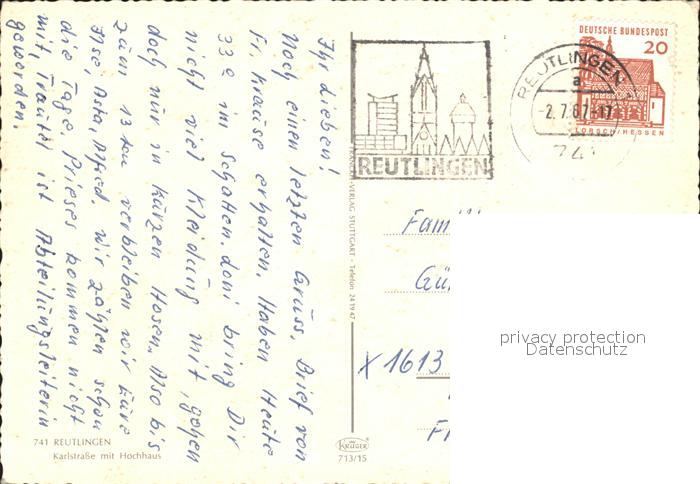 Ihr Lieben!
Noch einen letzten Gruss, Brief von
Fr. Krause erhalten. Haben Heute
33° im Schatten. Loni bring Dir
nicht viel Kleidung mit, gehen
doch nur in kurzen Hosen. Also bis
zum 13ten verbleiben wir Eure
Ilse, Asta, Alfred. Wir zählen schon
die Tage. Prieses kommen nicht
mit, Trautel ist Abteilungsleiterin
geworden.
741 REUTLINGEN
Karlstraße mit Hochhaus
VERLAG STUTTGART - Telefon 241947
KRÜGER
713/15
REUTLINGEN
REUTLINGEN
a
-2.7.67-17
741
DEUTSCHE BUNDESPOST
20
LORSCH/HESSEN
Fam
Gü
X 1613
F
privacy protection
Datenschutz